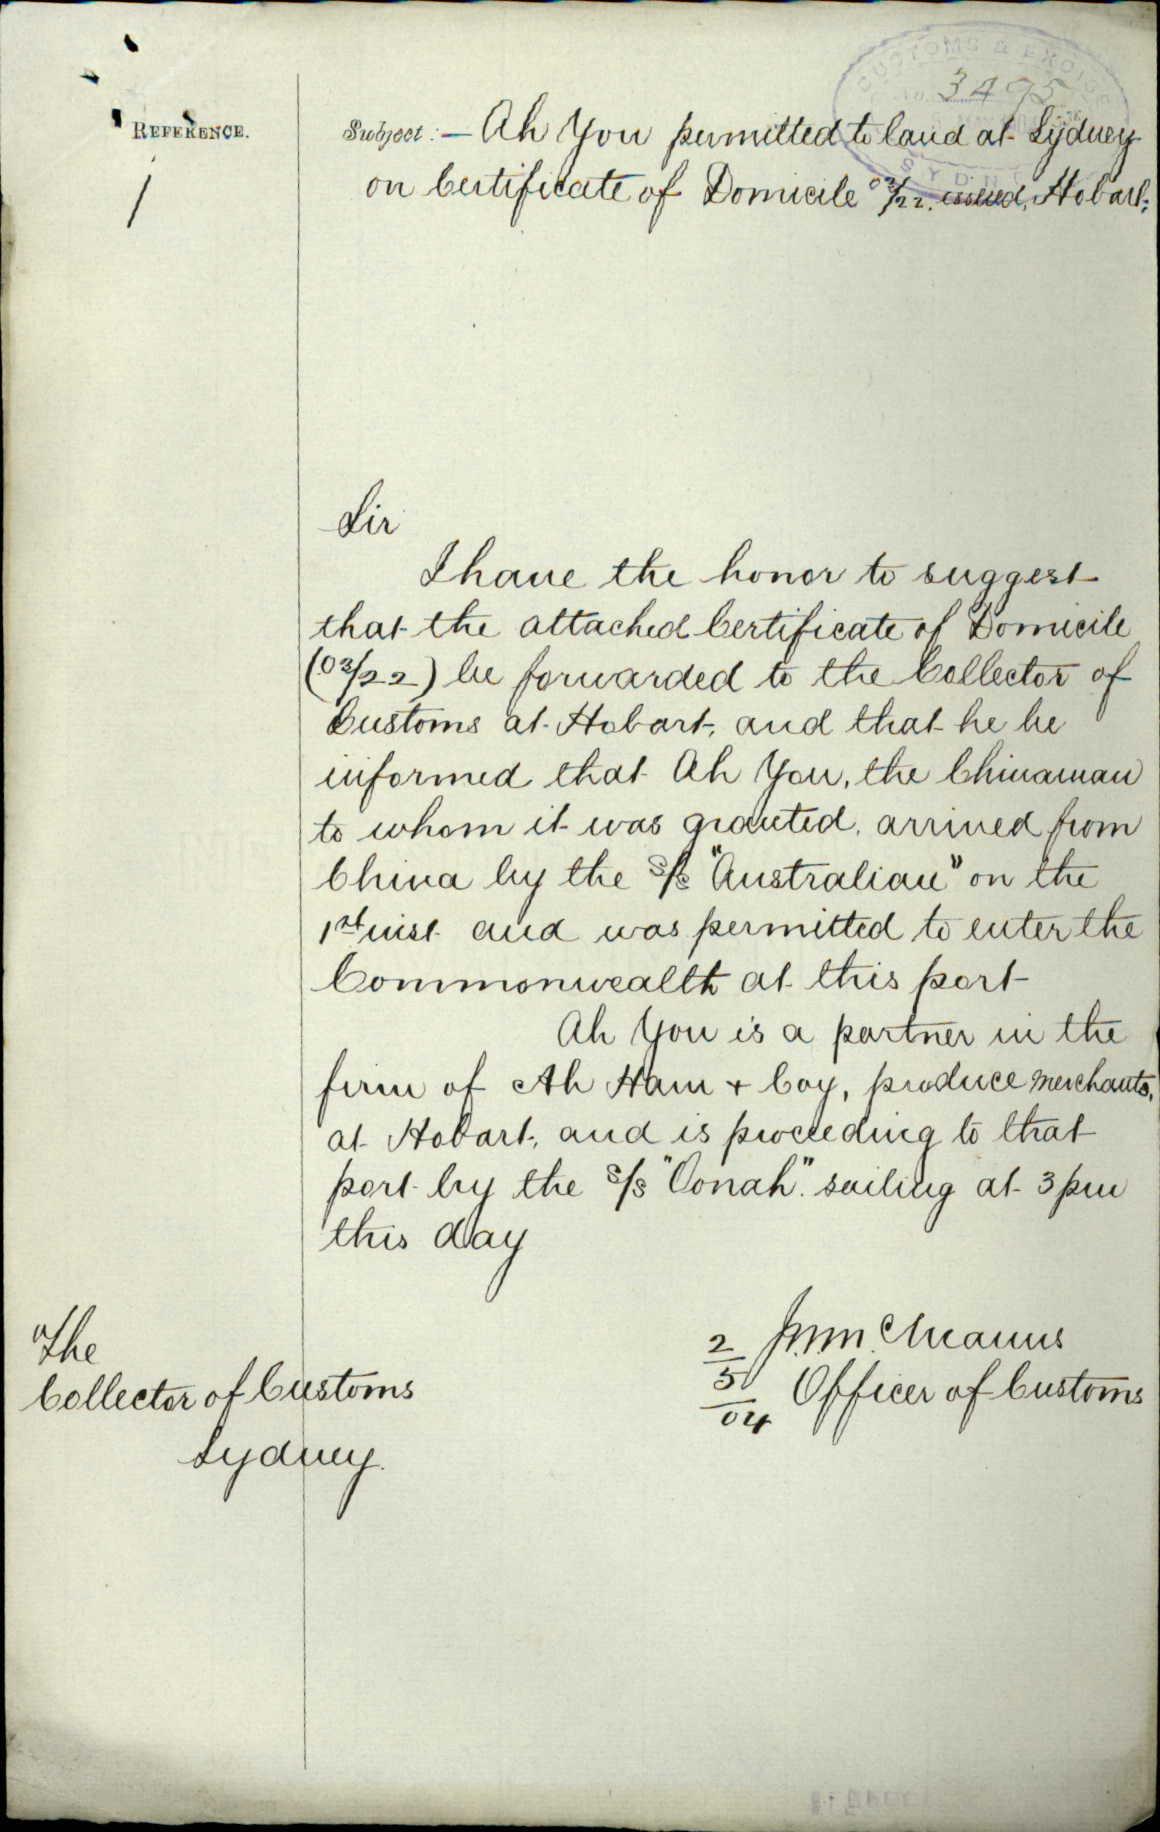 CUSTOMS & EXCISE
3495
SYDNEY
REFERENCE.
1
Subject:— Ah You permitted to land at Sydney
on Certificate of Domicile 03/22. issued, Hobart.
Sir
I have the honor to suggest
that the attached Certificate of Domicile
(03/22) be forwarded to the Collector of
Customs at Hobart, and that he be
informed that Ah You, the Chinaman
to whom it was granted, arrived from
China by the S/S "Australian" on the
1st inst and was permitted to enter the
Commonwealth at this port
Ah You is a partner in the
firm of Ah Ham + Coy, produce merchants,
at Hobart, and is proceeding to that
port by the S/S "Oonah". sailing at 3 pm
this day
2/5/04
Officer of Customs
The
Collector of Customs
Sydney.